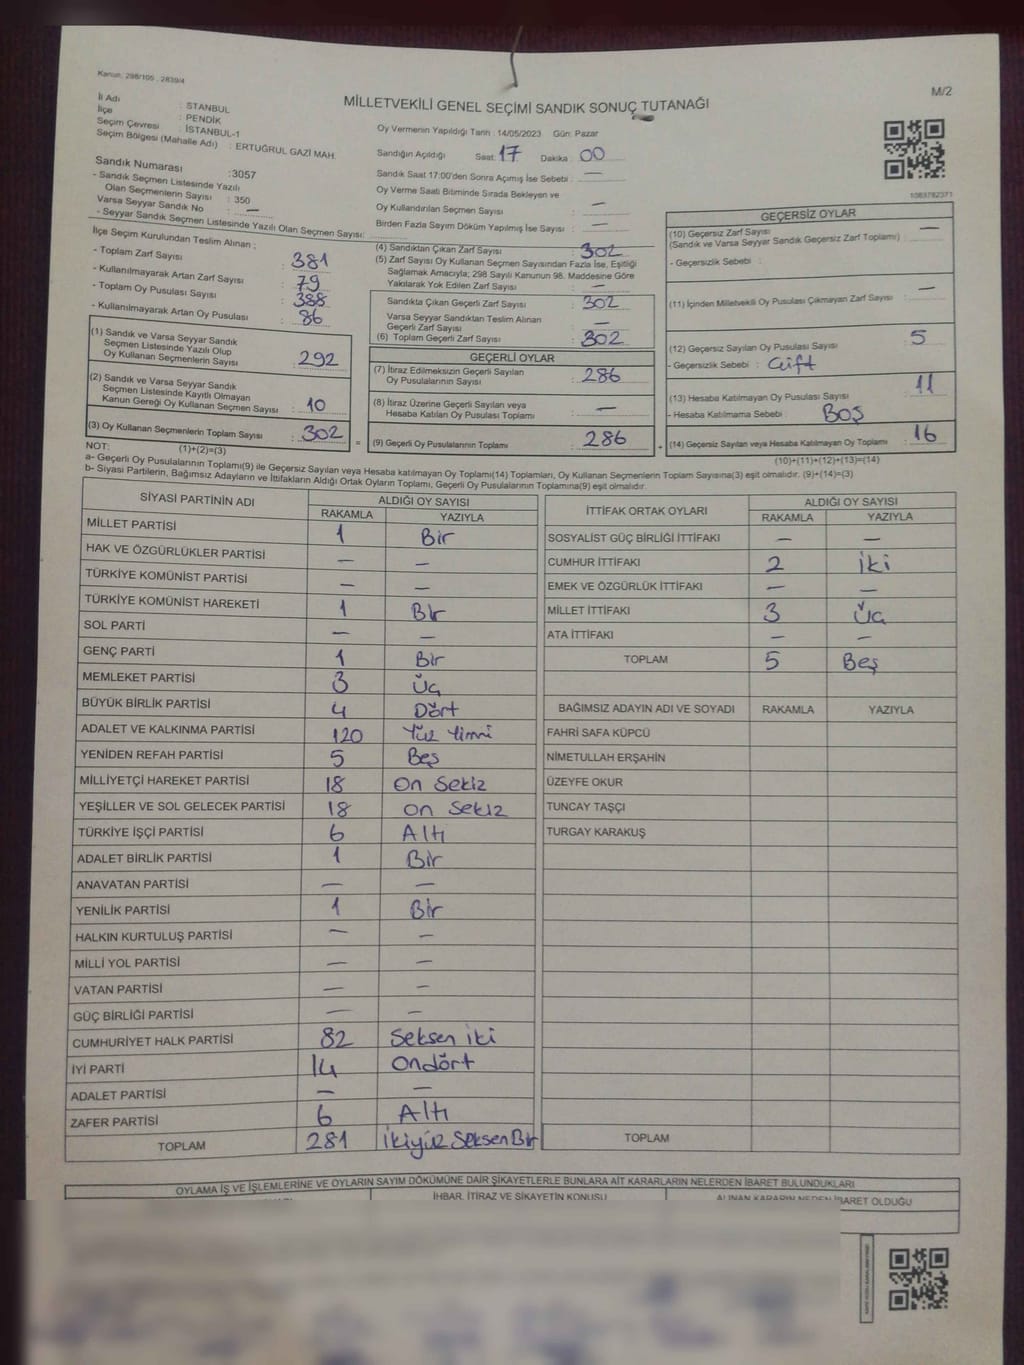 Kanun, 298/105 , 2839/4
M/2
MİLLETVEKİLİ GENEL SEÇİMİ SANDIK SONUÇ TUTANAĞI
İl Adı : STANBUL
İlçe : PENDİK
Seçim Çevresi : İSTANBUL-1
Seçim Bölgesi (Mahalle Adı) : ERTUĞRUL GAZİ MAH.
Sandık Numarası :3057
- Sandık Seçmen Listesinde Yazılı
Olan Seçmenlerin Sayısı : 350
Varsa Seyyar Sandık No : —
- Seyyar Sandık Seçmen Listesinde Yazılı Olan Seçmen Sayısı:
Oy Vermenin Yapıldığı Tarih : 14/05/2023 Gün: Pazar
Sandığın Açıldığı Saat: 17 Dakika : 00
Sandık Saat 17:00'den Sonra Açımış İse Sebebi : —
Oy Verme Saati Bitiminde Sırada Bekleyen ve
Oy Kullandırılan Seçmen Sayısı : —
Birden Fazla Sayım Döküm Yapılmış İse Sayısı : —
1083782371
İlçe Seçim Kurulundan Teslim Alınan ;
- Toplam Zarf Sayısı : 381
- Kullanılmayarak Artan Zarf Sayısı : 79
- Toplam Oy Pusulası Sayısı : 388
- Kullanılmayarak Artan Oy Pusulası : 86
(1) Sandık ve Varsa Seyyar Sandık
Seçmen Listesinde Yazılı Olup
Oy Kullanan Seçmenlerin Sayısı : 292
(2) Sandık ve Varsa Seyyar Sandık
Seçmen Listesinde Kayıtlı Olmayan
Kanun Gereği Oy Kullanan Seçmen Sayısı : 10
(3) Oy Kullanan Seçmenlerin Toplam Sayısı : 302 =
(1)+(2)=(3)
(4) Sandıktan Çıkan Zarf Sayısı : 302
(5) Zarf Sayısı Oy Kullanan Seçmen Sayısından Fazla İse, Eşitliği
Sağlamak Amacıyla; 298 Sayılı Kanunun 98. Maddesine Göre
Yakılarak Yok Edilen Zarf Sayısı : —
Sandıkta Çıkan Geçerli Zarf Sayısı : 302
Varsa Seyyar Sandıktan Teslim Alınan
Geçerli Zarf Sayısı : —
(6) Toplam Geçerli Zarf Sayısı : 302
GEÇERLİ OYLAR
(7) İtiraz Edilmeksizin Geçerli Sayılan
Oy Pusulalarının Sayısı : 286
(8) İtiraz Üzerine Geçerli Sayılan veya
Hesaba Katılan Oy Pusulası Toplamı : —
(9) Geçerli Oy Pusulalarının Toplamı : 286 +
GEÇERSİZ OYLAR
(10) Geçersiz Zarf Sayısı
(Sandık ve Varsa Seyyar Sandık Geçersiz Zarf Toplamı) : —
- Geçersizlik Sebebi :
(11) İçinden Milletvekili Oy Pusulası Çıkmayan Zarf Sayısı : —
(12) Geçersiz Sayılan Oy Pusulası Sayısı : 5
- Geçersizlik Sebebi : Çift
(13) Hesaba Katılmayan Oy Pusulası Sayısı : 11
- Hesaba Katılmama Sebebi : BOŞ
(14) Geçersiz Sayılan veya Hesaba Katılmayan Oy Toplamı : 16
(10)+(11)+(12)+(13)=(14)
NOT:
a- Geçerli Oy Pusulalarının Toplamı(9) ile Geçersiz Sayılan veya Hesaba katılmayan Oy Toplamı(14) Toplamları, Oy Kullanan Seçmenlerin Toplam Sayısına(3) eşit olmalıdır. (9)+(14)=(3)
b- Siyasi Partilerin, Bağımsız Adayların ve İttifakların Aldığı Ortak Oyların Toplamı, Geçerli Oy Pusulalarının Toplamına(9) eşit olmalıdır.
SİYASİ PARTİNİN ADI ALDIĞI OY SAYISI
RAKAMLA YAZIYLA
MİLLET PARTİSİ 1 Bir
HAK VE ÖZGÜRLÜKLER PARTİSİ — —
TÜRKİYE KOMÜNİST PARTİSİ — —
TÜRKİYE KOMÜNİST HAREKETİ 1 Bir
SOL PARTİ — —
GENÇ PARTİ 1 Bir
MEMLEKET PARTİSİ 3 Üç
BÜYÜK BİRLİK PARTİSİ 4 Dört
ADALET VE KALKINMA PARTİSİ 120 Yüz Yirmi
YENİDEN REFAH PARTİSİ 5 Beş
MİLLİYETÇİ HAREKET PARTİSİ 18 On Sekiz
YEŞİLLER VE SOL GELECEK PARTİSİ 18 on Sekiz
TÜRKİYE İŞÇİ PARTİSİ 6 Altı
ADALET BİRLİK PARTİSİ 1 Bir
ANAVATAN PARTİSİ — —
YENİLİK PARTİSİ 1 Bir
HALKIN KURTULUŞ PARTİSİ — —
MİLLİ YOL PARTİSİ — —
VATAN PARTİSİ — —
GÜÇ BİRLİĞİ PARTİSİ — —
CUMHURİYET HALK PARTİSİ 82 Seksen iki
İYİ PARTİ 14 Ondört
ADALET PARTİSİ — —
ZAFER PARTİSİ 6 Altı
TOPLAM 281 İkiyüz Seksen Bir
İTTİFAK ORTAK OYLARI ALDIĞI OY SAYISI
RAKAMLA YAZIYLA
SOSYALİST GÜÇ BİRLİĞİ İTTİFAKI — —
CUMHUR İTTİFAKI 2 İki
EMEK VE ÖZGÜRLÜK İTTİFAKI — —
MİLLET İTTİFAKI 3 Üç
ATA İTTİFAKI — —
TOPLAM 5 Beş
BAĞIMSIZ ADAYIN ADI VE SOYADI RAKAMLA YAZIYLA
FAHRİ SAFA KÜPCÜ
NİMETULLAH ERŞAHİN
ÜZEYFE OKUR
TUNCAY TAŞÇI
TURGAY KARAKUŞ
TOPLAM
OYLAMA İŞ VE İŞLEMLERİNE VE OYLARIN SAYIM DÖKÜMÜNE DAİR ŞİKAYETLERLE BUNLARA AİT KARARLARIN NELERDEN İBARET BULUNDUKLARI
İHBAR, İTİRAZ VE ŞİKAYETİN KONUSU
ALINAN KARARIN NEDEN İBARET OLDUĞU